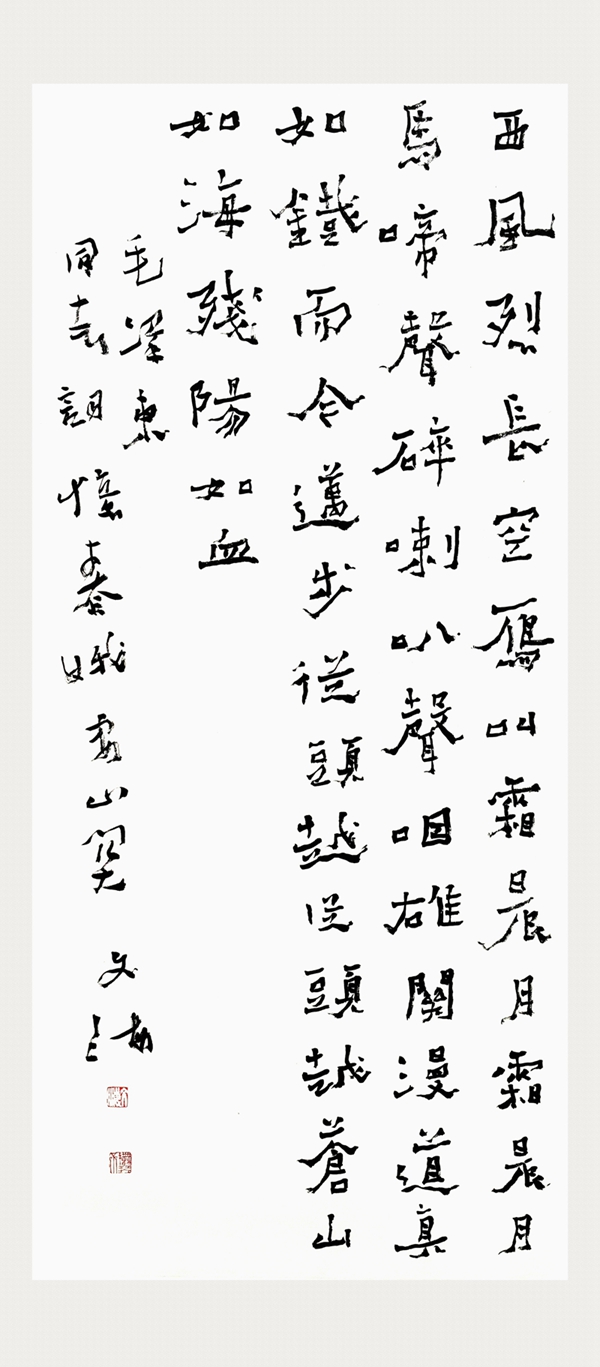 西風烈長空鴈叫霜晨月霜晨月
馬啼聲碎喇叭聲咽雄關漫道真
如鐵而今邁步從頭越從頭越蒼山
如海殘陽如血
毛澤東
同志詞憶秦娥婁山關
文